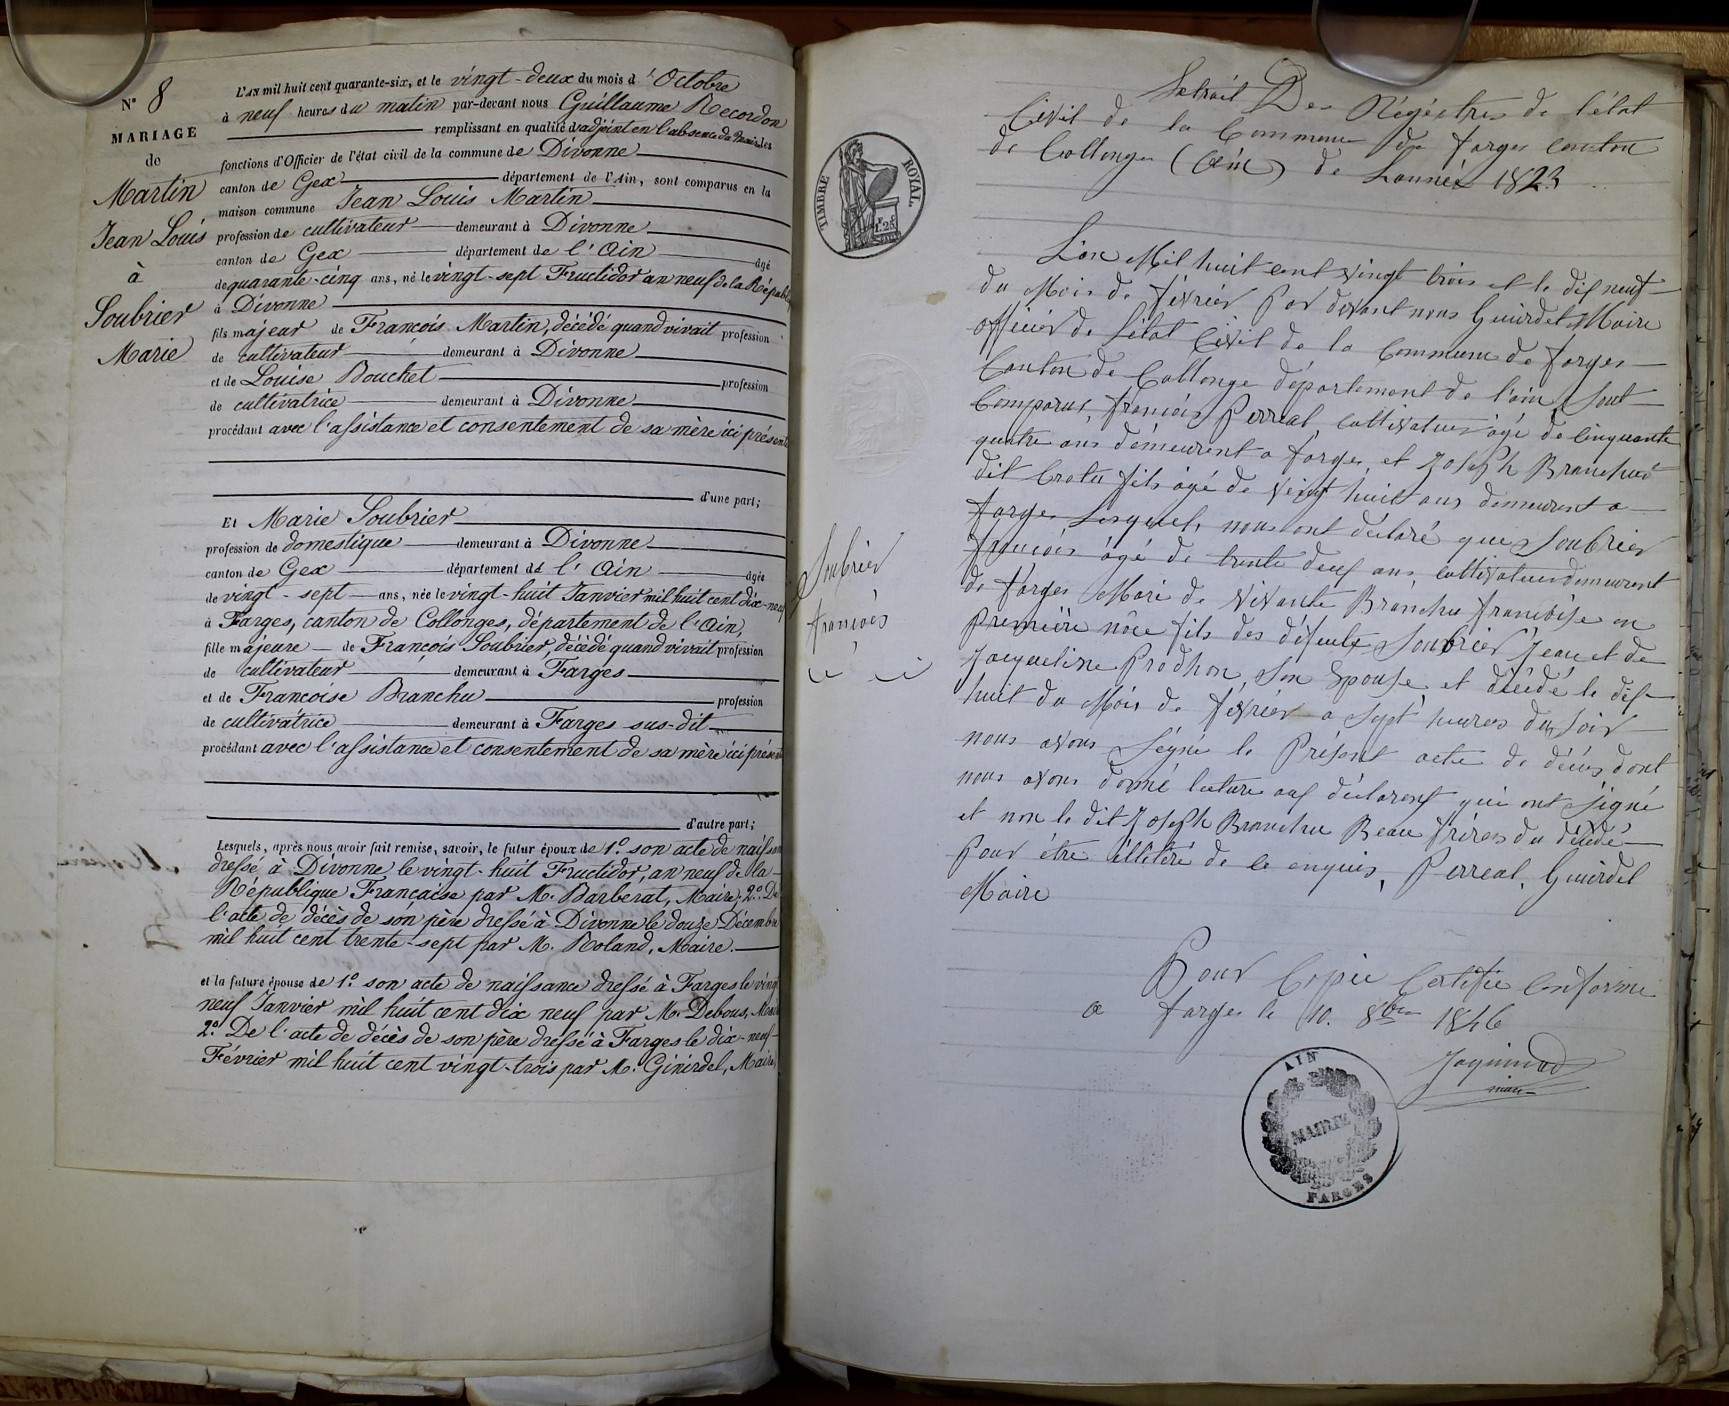 N° 8
MARIAGE
de
Martin
Jean Louis
à
Soubrier
Marie
L'AN mil huit cent quarante-six, et le vingt-deux du mois d'Octobre
à neuf heures du matin par-devant nous Guillaume Recordon
remplissant en qualité d'adjoint en l'absence du Maire les
fonctions d'Officier de l'état civil de la commune de Divonne
canton de Gex département de l'Ain, sont comparus en la
maison commune Jean Louis Martin
profession de cultivateur demeurant à Divonne
canton de Gex département de l'Ain âgé
de quarante-cinq ans, né le vingt-sept Fructidor an neuf de la Répub
à Divonne
fils majeur de François Martin, décédé quand vivait profession
de cultivateur demeurant à Divonne
et de Louise Bouchet profession
de cultivatrice demeurant à Divonne
procédant avec l'assistance et consentement de sa mère ici présente
d'une part;
Et Marie Soubrier
profession de domestique demeurant à Divonne
canton de Gex département de l'Ain âgée
de vingt-sept ans, née le vingt-huit Janvier mil huit cent dix-neuf
à Farges, canton de Collonges, département de l'Ain,
fille majeure de François Soubrier, décédé quand vivait profession
de cultivateur demeurant à Farges
et de Françoise Branchu profession
de cultivatrice demeurant à Farges sus-dit
procédant avec l'assistance et consentement de sa mère ici présente
d'autre part;
Lesquels, après nous avoir fait remise, savoir, le futur époux de 1° son acte de naissance
dressé à Divonne le vingt-huit Fructidor, an neuf de la
République Française par M. Barberat, Maire; 2° De
l'acte de décès de son père dressé à Divonne le douze Décembre
mil huit cent trente-sept par M. Roland, Maire.
et la future épouse de 1° son acte de naissance dressé à Farges le vingt
neuf Janvier mil huit cent dix neuf par M. Debous, Maire
2° De l'acte de décès de son père dressé à Farges le dix-neuf
Février mil huit cent vingt-trois par M. Girirdel, Maire,
TIMBRE ROYAL
1F.25
Extrait Des Régistres de l'état
Civil de la Commune de farges canton
de Collonge (Ain) de Lannéé 1823
Soubrier
francois
L'an Mil huit cent vingt trois et le dix neuf
du Mois de février Par devant nous Guirdel Maire
officier de l'état Civil de la Commune de farges
Canton de Collonge département de l'ain Sont
Comparus, francois Perreal, cultivateur âgé de cinquante
quatre ans demeurent a farges, et Joseph Branchu
dit fils âgé de vingt huit ans demeurent a
farges Lesquels nous ont déclaré que Soubrier
francois âgé de trente deux ans, cultivateur demeurent
de farges Mari de vivante Branchu francoise en
Première nôce fils des défunts Soubrier Jean et de
Jacqueline Prodhon, Son Epouse, et décédé le dix
huit du Mois de février a Sept heures du soir
nous avons Signé le Présent acte de décès dont
nous avons donné lecture aux déclarens qui ont Signé
et non le dit Joseph Branchu Beau frère du décédé
Pour être illitéré de ce enquis, Perreal, Guirdel
Maire
Pour Copie Certifié Conforme
a farges le 10. 8bre 1846
maire
AIN
MAIRIE
FARGES